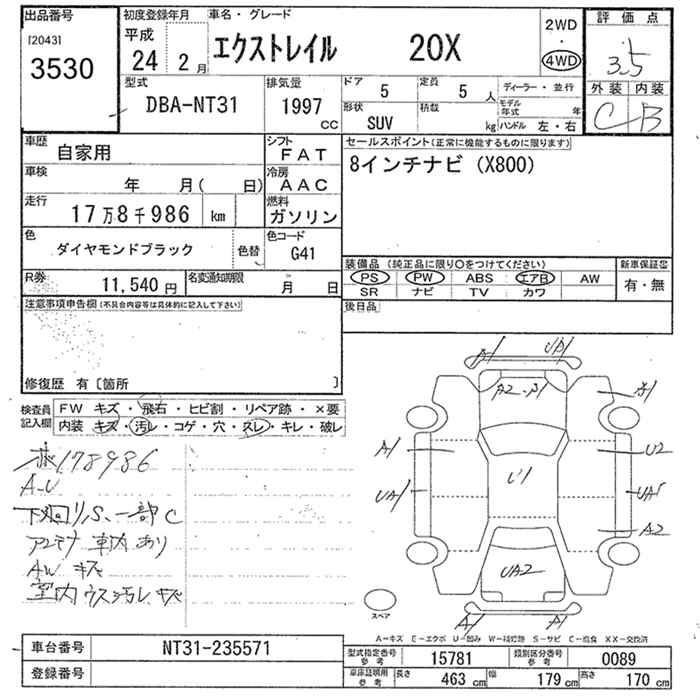 出品番号
[2043]
3530
初度登録年月
平成
24 2 月
車名・グレード
エクストレイル 20X
2WD
・
4WD
評価点
3.5
外装 内装
C B
型式
DBA-NT31
排気量
1997
cc
ドア
5
定員
5 人
形状
SUV
積載
kg
ディーラー・並行
モデル
年式 年
ハンドル 左・右
車歴
自家用
シフト
FAT
車検
年 月( 日)
冷房
AAC
走行
17万8千986 km
燃料
ガソリン
色
ダイヤモンドブラック
色替
色コード
G41
R券
11,540 円
名変通知期限
月 日
セールスポイント(正常に機能するものに限ります)
8インチナビ(X800)
装備品(純正品に限り○をつけてください)
PS PW ABS エアB AW
SR ナビ TV カワ
新車保証書
有・無
後日品
注意事項申告欄(不具合内容等は具体的に記入して下さい)
修復歴 有〔箇所 〕
検査員
記入欄
FW キズ・飛石・ヒビ割・リペア跡・×要
内装 キズ・汚レ・コゲ・穴・スレ・キレ・破レ
178986
A-U
下廻リS、一部C
アンテナ 車内あり
AWキズ
室内ウス汚レ、キズ
A1 U1
A2
A1
A1
U2
UA1
UA1
A2
UA2
A1 A1
スペア
A-キズ E-エクボ U-凹み W-補修跡 S-サビ C-腐食 XX-交換済
車台番号
NT31-235571
登録番号
型式指定番号
参考
15781
類別区分番号
参考
0089
車庫証明用
参考
長さ
463 cm
幅
179 cm
高さ
170 cm